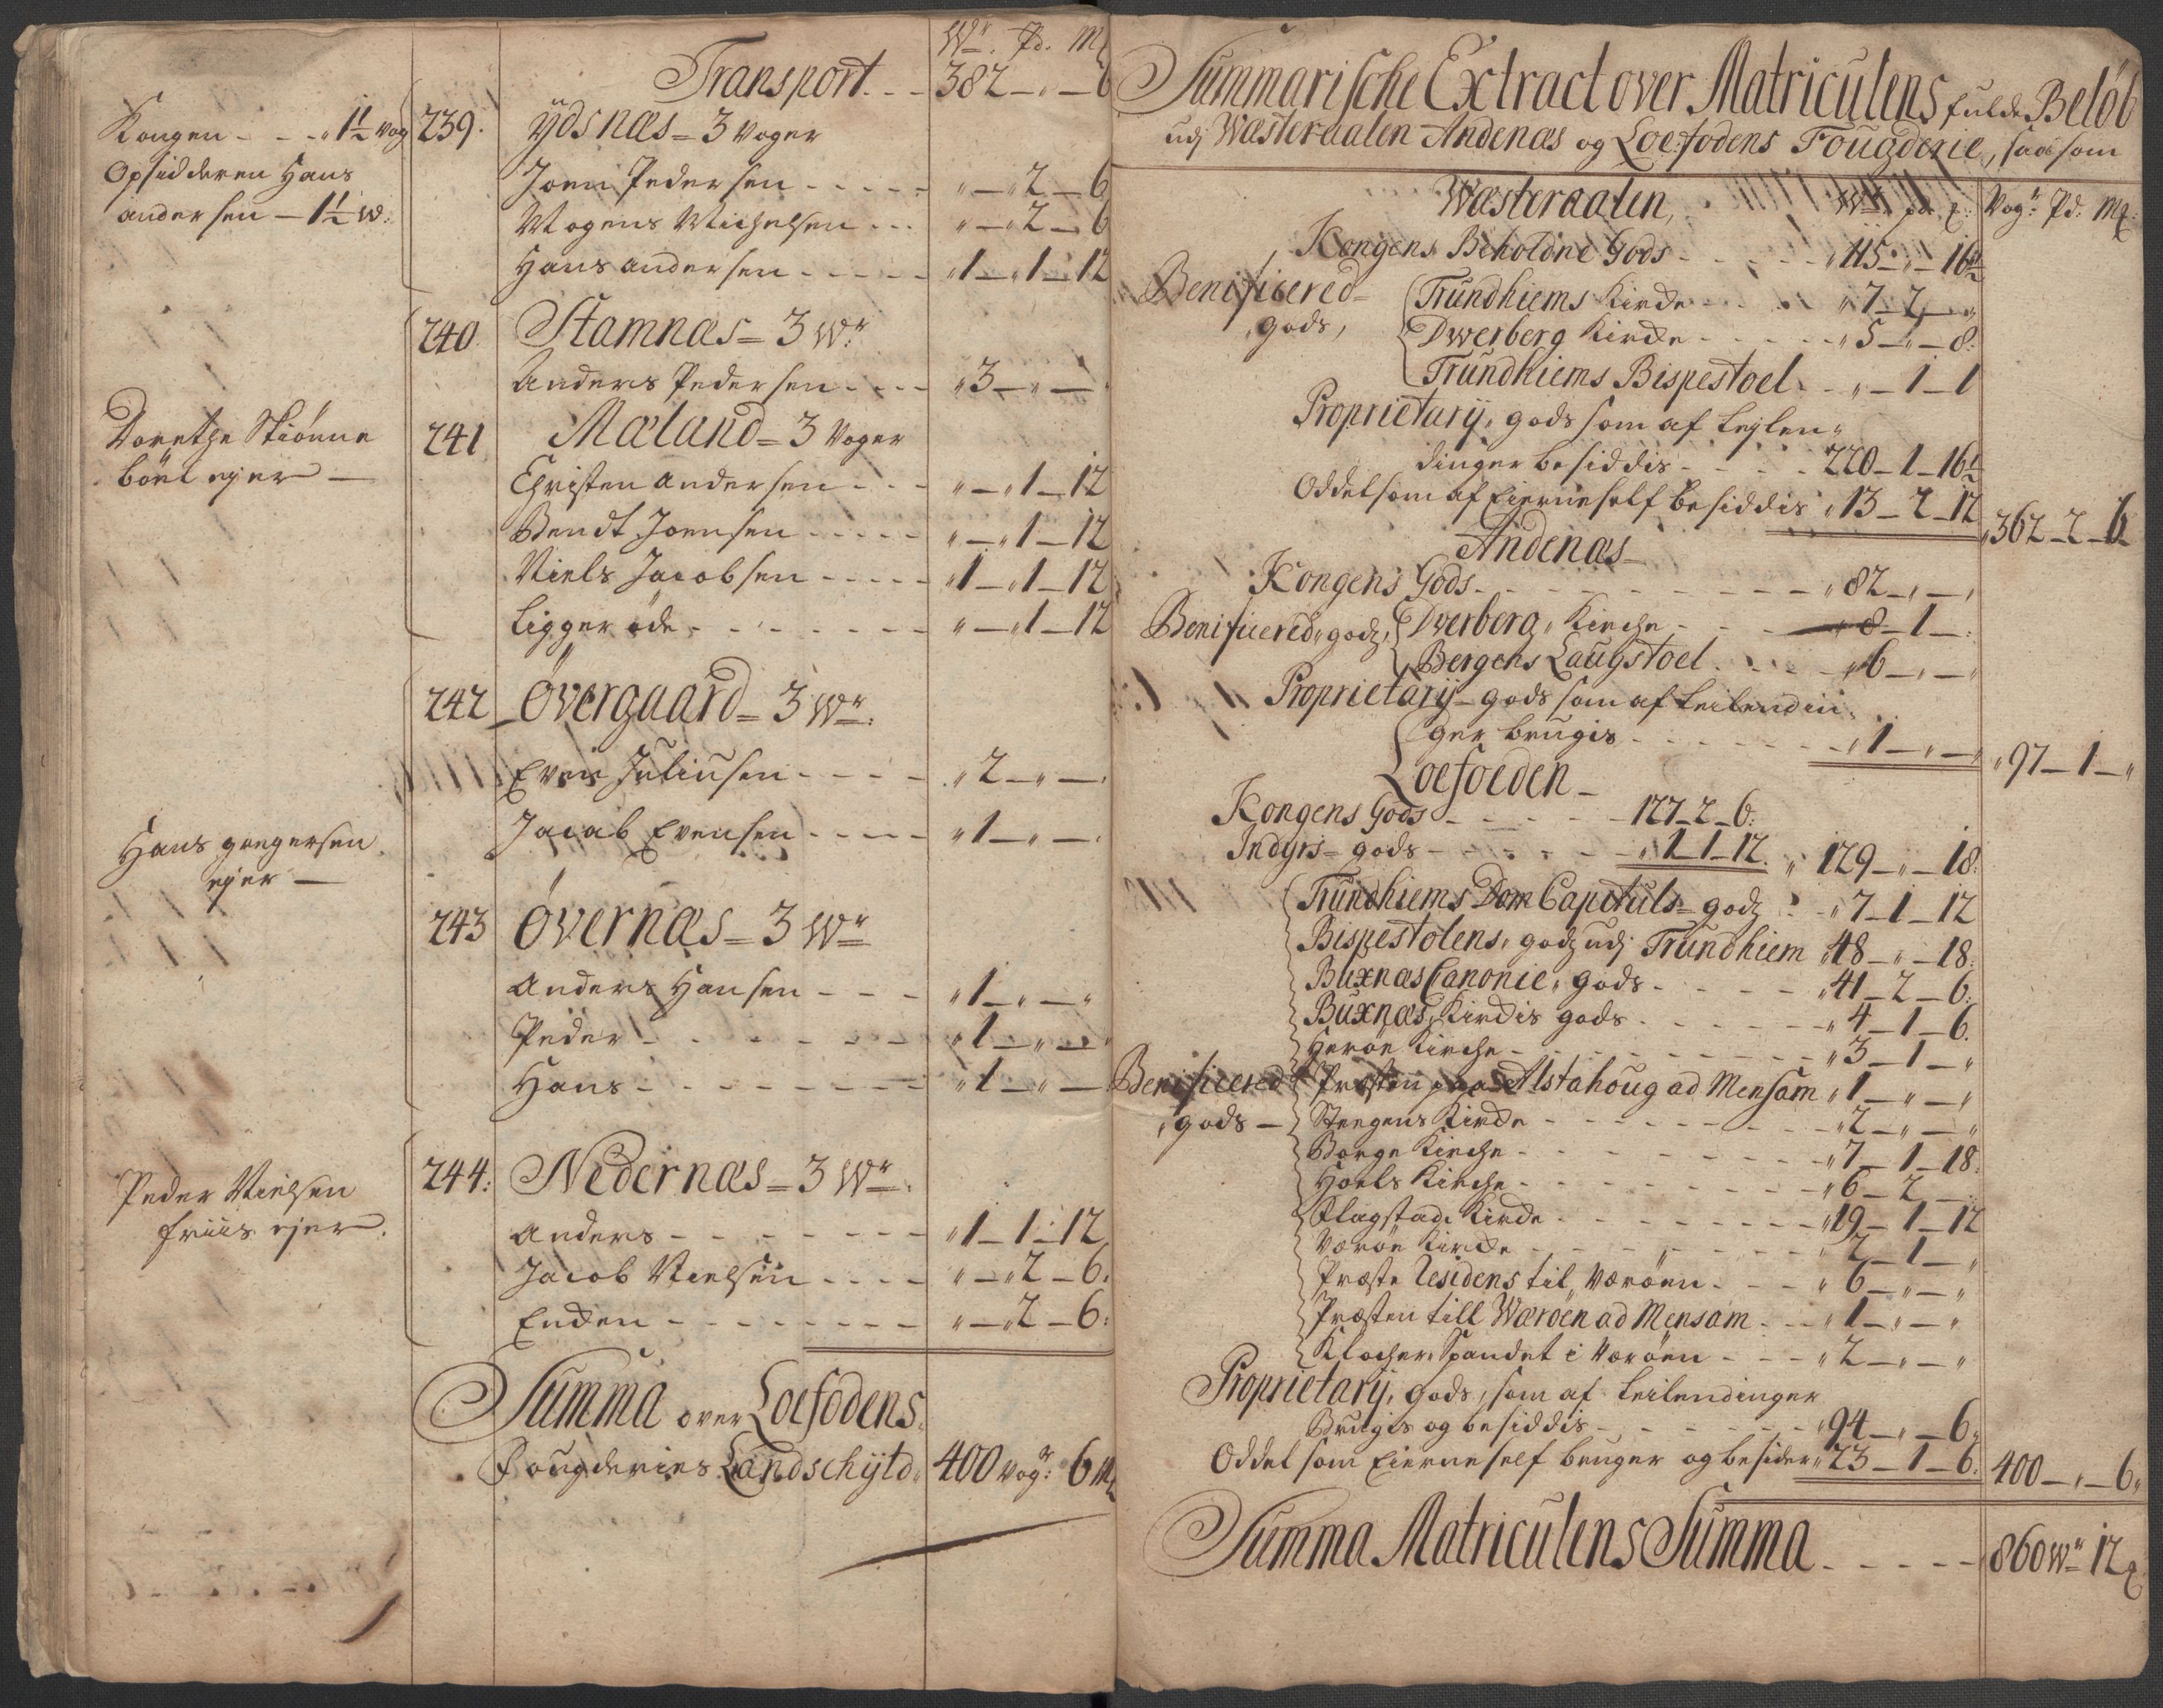 Wr. Pd. M
Transport. - - 382 - " - 6
Kongen - - - 1½ Vog
Opsidderen Hans
andersen - 1½ W:
239. ÿdsnæs = 3 Voger
Joen Pedersen - - - - - " - " 2 - 6
Mogens Michelsen - - - " - " 2 - 6
Hans andersen - - - - - " 1 - " 1 - 12
240. Stamnæs = 3 Wr.
Anders Pedersen - - - - " 3 - " -
Dorethe Skiønne
böel ejer -
241 Mæland = 3 Voger
Christen Andersen - - - " - " 1 - 12
Bendt Joensen - - - - - " - " 1 - 12
Niels Jacobsen - - - - - " 1 - " 1 - 12
Ligger öde - - - - - - - " - " 1 - 12
242 Övergaard = 3 Wr.
Even Juliusen - - - - " 2 - " - "
Jacob Evensen - - - - - " 1 - " - "
Hans gregersen
ejer -
243 Övernæs = 3 Wr
Anders Hansen - - - " 1 - " - "
Peder - - - - - - - " 1 - " - "
Hans - - - - - - - - " 1 - " -
Peder Nielsen
friis ejer.
244: Nedernæs = 3 Wr.
Anders - - - - - - - " 1 - 1 - 12
Jacob Nielsen - - - - " - " 2 - 6.
Enden - - - - - - - - " - " 2 - 6:
Summa over Loefodens
Fougderies Landschÿld " 400 Vogr: 6 M
Summarische Extract over Matriculens fulde Belöb
udj Wæsteraalen Andenæs og Loefodens Fougderie, saasom
Wæsteraalen, Wr. pd. Vogr. Pd: M
Kongens Beholdne Gods - - - - - " 115 - " - 16½
Benificered=
gods,
Trundhiems Kirche - - - " 7 - 2 - "
Dwerberg Kirche - - - - - " 5 - " - 8:
Trundhiems Bispestoel - - " - 1 - 1
Proprietarÿ, gods som af Lejlen"
dinger besiddis - - - - 220 - 1 - 16½
Oddel som af Eierne self besiddis " 13 - 2 - 12 " 362 - 2 - 6
Andenæs -
Kongens Gods - - - - - - - - - - " 82 - " - "
Benificered, godz, Dverberg, Kirche - - - " 8 - 1 - :
Bergens Laugstoel - - - - " 6 - " - "
Proprietarÿ - gods som af Leilendin
ger brugis - - - - - - - - " 1 - " - " " 97 - 1 - "
Loefoeden -
Kongens Gods - - - - - 127 - 2 - 6:
Indyrs = gods - - - - - " 1 - 1 - 12. " 129 - " - 18:
Trundhiems Dom Capituls = godz - - " 7 - 1 - 12
Bispestolens, godz udj Trundhiem " 48 - " - 18:
Buxnæs Canonie, gods - - - - - " 41 - 2 - 6:
Buxnæs, Kirchis gods - - - - - - " 4 - 1 - 6.
Heröe Kirche - - - - - - - - - - " 3 - 1 - "
Benificered
gods -
Præsten paa Alstahoug ad Mensam " 1 - " - "
Stegens Kirche - - - - - - - - - " 2 - " - "
Borge Kirche - - - - - - - - - - " 7 - 1 - 18:
Hoels Kirche - - - - - - - - - - " 6 - 2 - :
Flagstad Kirche - - - - - - - - " 19 - 1 - 12
Væröe Kirche - - - - - - - - - " 2 - 1 - "
Præste Residens til, Væröen - - - " 6 - " - "
Præsten till Wæröen ad Mensam - - " 1 - " - "
Klocher, Spandet i Væröen - - - " 2 - " - "
Proprietarÿ, gods, som af Leilendinger
Brugis og besiddis - - - - - - - " 94 - " - 6.
Oddel som Eierne self bruger og besider " 23 - 1 - 6: 400 - " - 6 "
Summa Matriculens Summa - - - - - 860 Wr 12